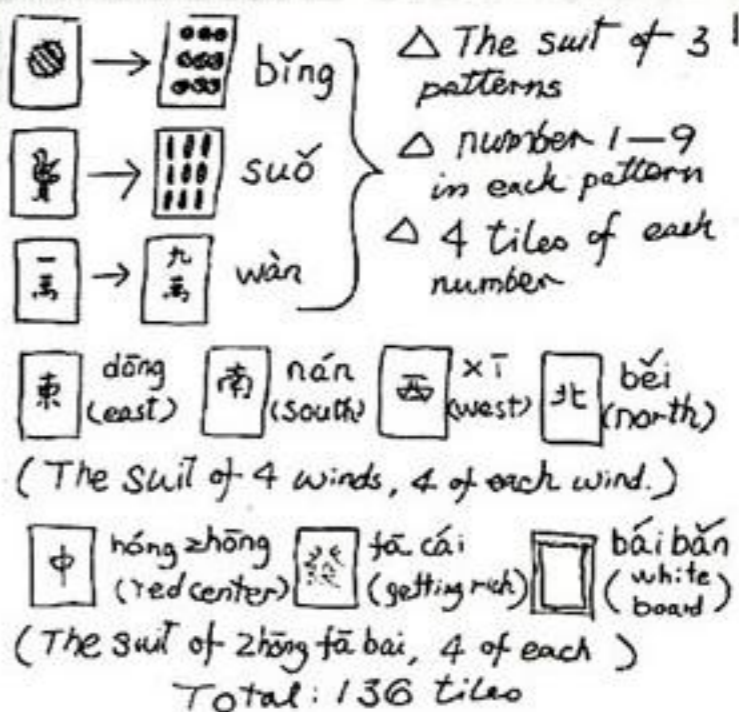 bǐng
suǒ
一萬 九萬 wàn
△ The suit of 3 patterns
△ number 1—9 in each pattern
△ 4 tiles of each number
東 dōng (east) 南 nán (south) 西 xī (west) 北 běi (north)
(The suit of 4 winds, 4 of each wind.)
中 hóng zhōng (red center) 發 fā cái (getting rich) bái bǎn (white board)
(The suit of zhōng fā bai, 4 of each)
Total: 136 tiles